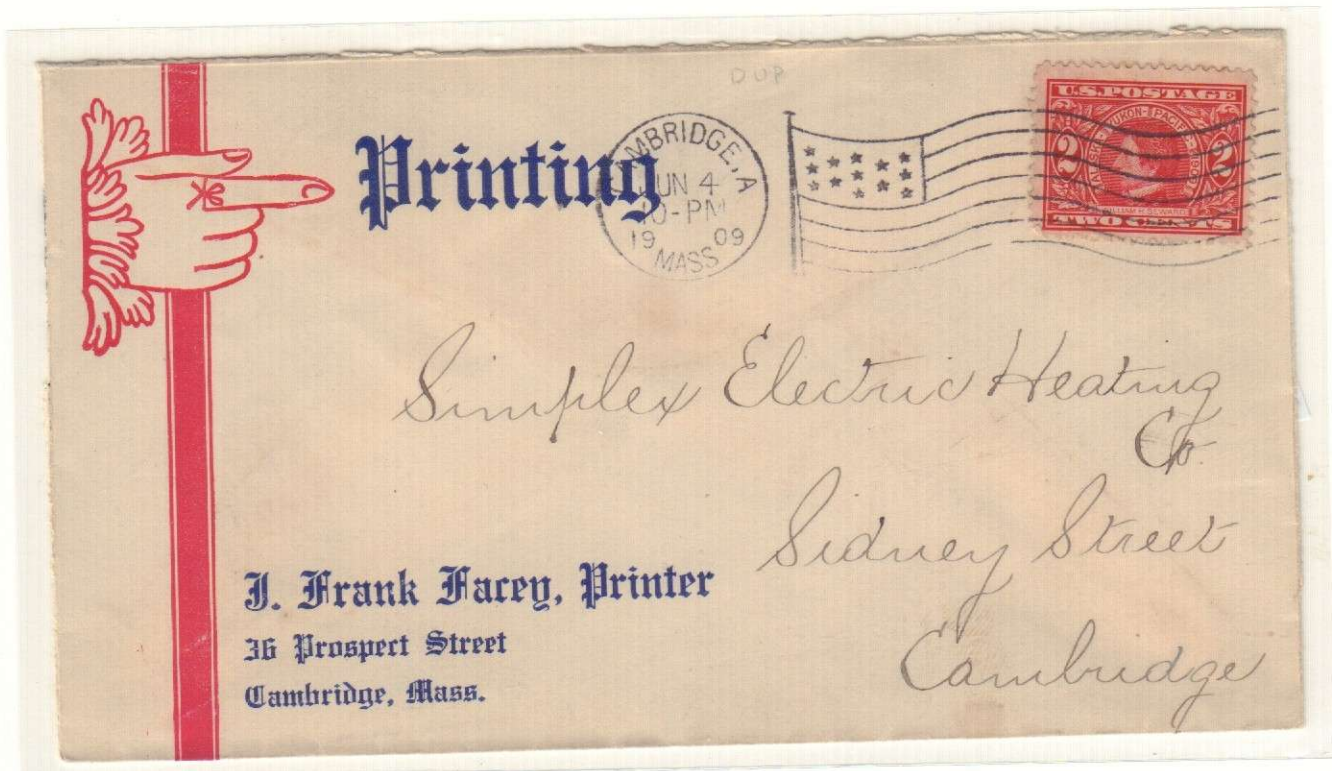 DUP
Printing
CAMBRIDGE, A
JUN 4
10-PM
19 09
MASS
U.S. POSTAGE
ALASKA-YUKON-PACIFIC
2 2
WILLIAM H. SEWARD
TWO CENTS
Simplex Electric Heating
Co.
Sidney Street
Cambridge
J. Frank Facey, Printer
36 Prospect Street
Cambridge, Mass.